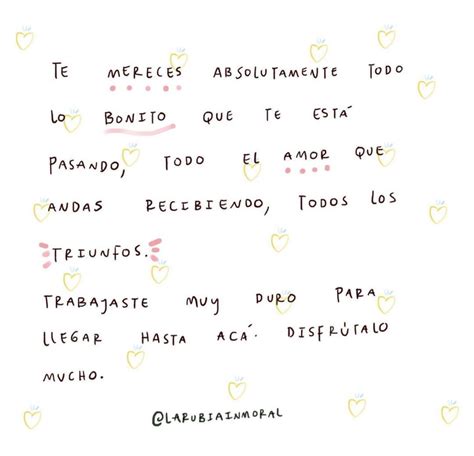 TE MERECES ABSOLUTAMENTE TODO
LO BONITO QUE TE ESTÁ
PASANDO, TODO EL AMOR QUE
ANDAS RECIBIENDO, TODOS LOS
TRIUNFOS.
TRABAJASTE MUY DURO PARA
LLEGAR HASTA ACÁ. DISFRÚTALO
MUCHO.
@LARUBIAINMORAL